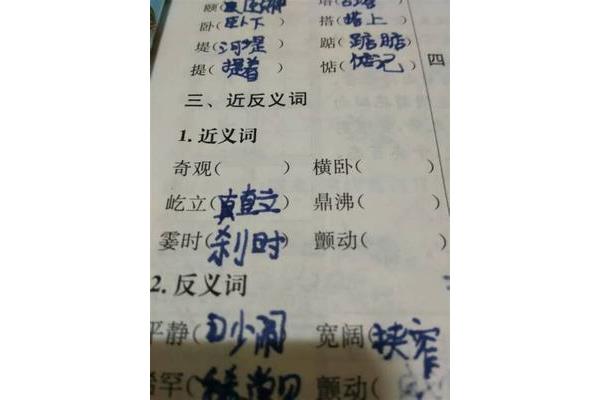 卧(卧下) 搭(搭上)
堤(河堤) 踮(踮脚)
提(提着) 惦(惦记)
四
三、近反义词
1.近义词
奇观( ) 横卧( )
屹立(直立) 鼎沸( )
霎时(刹时) 颤动( )
2.反义词
平静( 闹) 宽阔(狭窄)
罕( 常见 颤动(